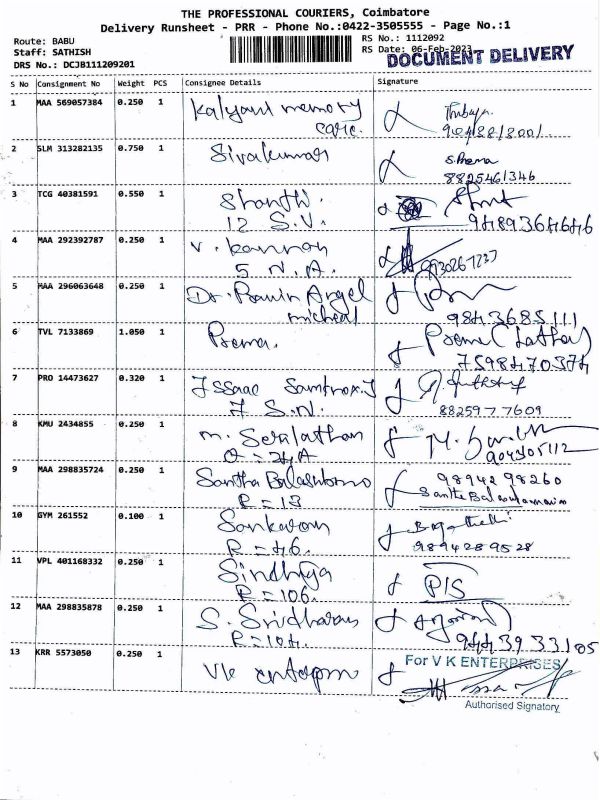 THE PROFESSIONAL COURIERS, Coimbatore
Delivery Runsheet - PRR - Phone No.:0422-3505555 - Page No.:1
Route: BABU
RS No.: 1112092
Staff: SATHISH
RS Date: 06-Feb-2023
DOCUMENT DELIVERY
DRS No.: DCJB111209201
S No Consignment No Weight PCS Consignee Details Signature
1 MAA 569057384 0.250 1 Kalyani memory
care.
2 SLM 313282135 0.750 1 Sivakumar
S.Prema
8825461346
3 TCG 40381591 0.550 1 Shanthi.
12 S.V.
9489364646
4 MAA 292392787 0.250 1 V. Kannan
5 N.A.
5 MAA 296063648 0.250 1 Dr. Angel
micheal
9843685111
6 TVL 7133869 1.050 1 Prema. Prema (Latha)
7598470374
7 PRO 14473627 0.320 1
7 S.N.
8825977609
8 KMU 2434855 0.250 1 m. Seralathan
9 MAA 298835724 0.250 1 Santha
R = 13
9894298260
10 GYM 261552 0.100 1 Sankaran
R = 46.
9894289528
11 VPL 401168332 0.250 1 Sindhya
R = 106.
12 MAA 298835878 0.250 1 S. Sridharan
R = 104.
9443933105
13 KRR 5573050 0.250 1 VK For V K ENTERPRISES
Authorised Signatory